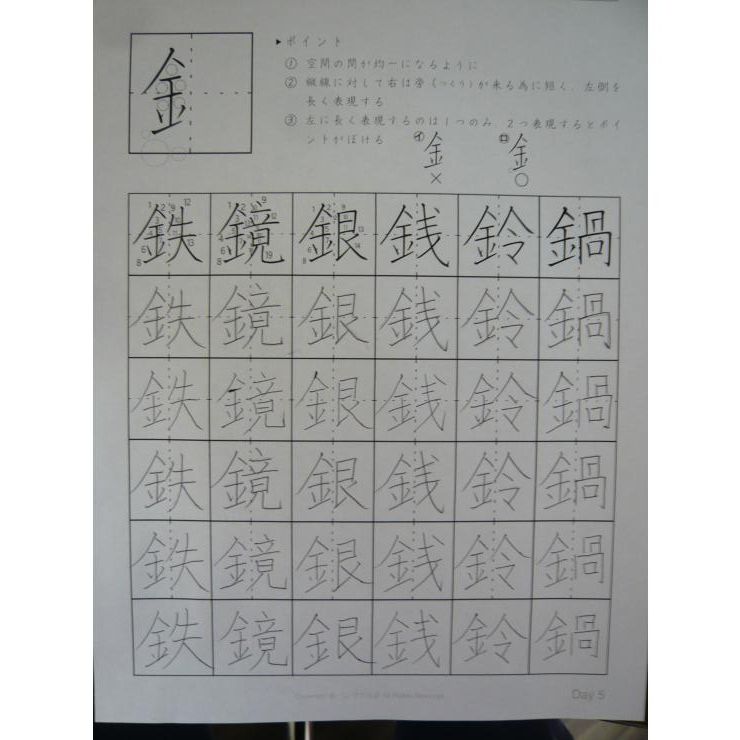 金
▶ポイント
① 空間の間が均一になるように
② 縦線に対して右は旁(つくり)が来る為に短く、左側を
長く表現する
③ 左に長く表現するのは1つのみ、2つ表現するとポイ
ントがぼける
イ 金 × ロ 金 ○
鉄 鏡 銀 銭 鈴 鍋
鉄 鏡 銀 銭 鈴 鍋
鉄 鏡 銀 銭 鈴 鍋
鉄 鏡 銀 銭 鈴 鍋
鉄 鏡 銀 銭 鈴 鍋
鉄 鏡 銀 銭 鈴 鍋
All Rights Reserved.
Day 5